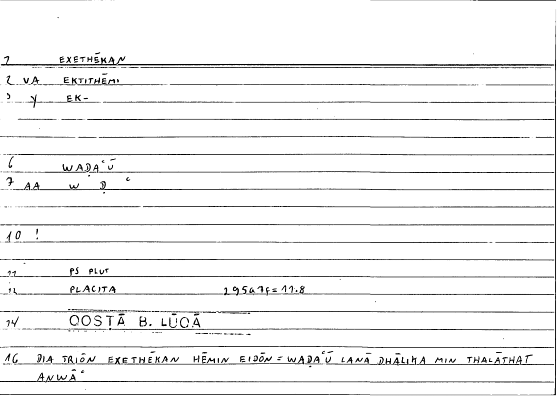 1 EXETHĒKAN
2 VA EKTITHĒMI
3 Y EK-
6 WAḌAʿŪ
7 AA W Ḍ ʿ
10 !
11 PS PLUT
12 PLACITA 295a7f=11.8
14 QOSṬĀ B. LŪQĀ
16 DIA TRIŌN EXETHĒKAN HĒMIN EIDŌN = WAḌAʿŪ LANĀ DHĀLIKA MIN THALĀTHAT
ANWĀʿ